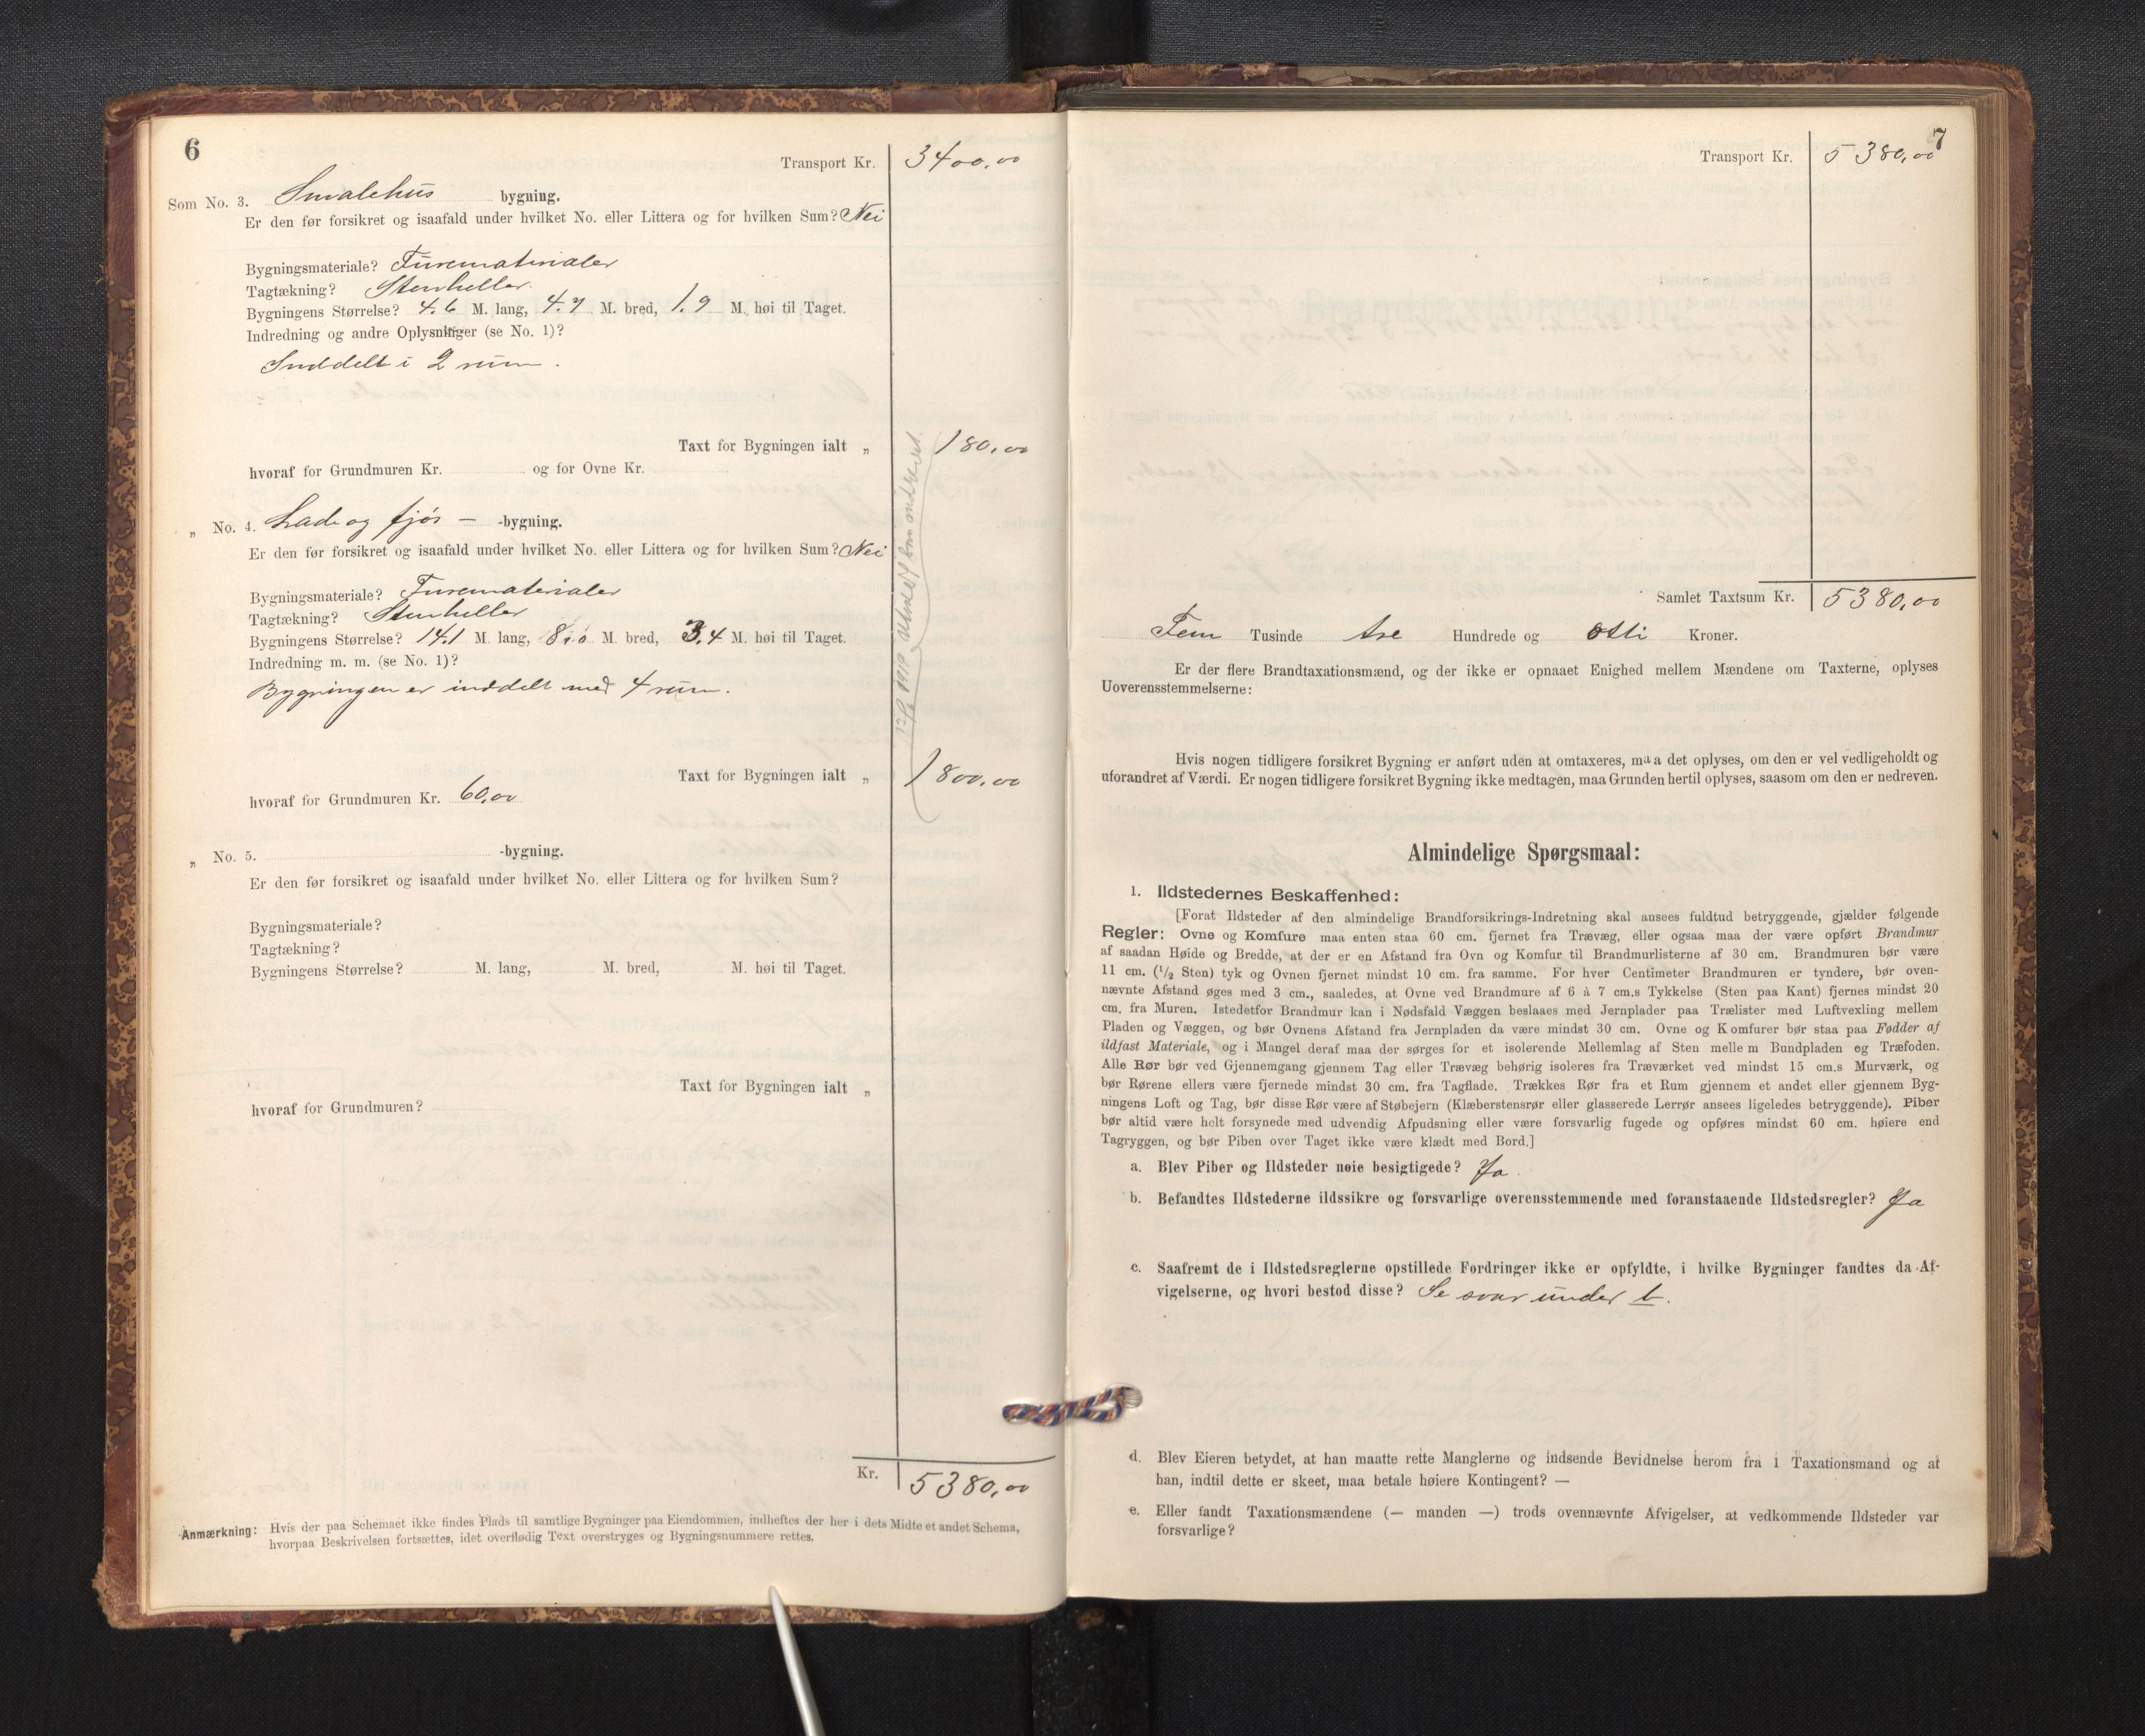 6
Transport Kr. 3400,00
Som No. 3. Smalehus bygning.
Er den før forsikret og isaafald under hvilket No. eller Littera og for hvilken Sum? Nei
Bygningsmateriale? Furematerialer
Tagtækning? Stenheller.
Bygningens Størrelse? 4.6 M. lang, 4.7 M. bred, 1.9 M. høi til Taget.
Indredning og andre Oplysninger (se No. 1)?
Inddelt i 2 rum.
Taxt for Bygningen ialt „ 180,00
hvoraf for Grundmuren Kr. og for Ovne Kr.
„ No. 4. Lade og fjøs - -bygning.
Er den før forsikret og isaafald under hvilket No. eller Littera og for hvilken Sum? Nei
Bygningsmateriale? Furematerialer
Tagtækning? Stenheller
Bygningens Størrelse? 14.1 M. lang, 8.0 M. bred, 3.4 M. høi til Taget.
Indredning m. m. (se No. 1)?
Bygningen er inddelt med 4 rum.
Taxt for Bygningen ialt „ 1800,00
hvoraf for Grundmuren Kr. 60,00
„ No. 5. -bygning.
Er den før forsikret og isaafald under hvilket No. eller Littera og for hvilken Sum?
Bygningsmateriale?
Tagtækning?
Bygningens Størrelse? M. lang, M. bred, M. høi til Taget.
Taxt for Bygningen ialt „
hvoraf for Grundmuren?
Kr. 5380,00
Anmærkning: Hvis der paa Schemaet ikke findes Plads til samtlige Bygninger paa Eiendommen, indheftes der her i dets Midte et andet Schema,
hvorpaa Beskrivelsen fortsættes, idet overflødig Text overstryges og Bygningsnummere rettes.
7
Transport Kr. 5380,00
Samlet Taxtsum Kr. 5380,00
Fem Tusinde tre Hundrede og otti Kroner.
Er der flere Brandtaxationsmænd, og der ikke er opnaaet Enighed mellem Mændene om Taxterne, oplyses
Uoverensstemmelserne:
Hvis nogen tidligere forsikret Bygning er anført uden at omtaxeres, maa det oplyses, om den er vel vedligeholdt og
uforandret af Værdi. Er nogen tidligere forsikret Bygning ikke medtagen, maa Grunden hertil oplyses, saasom om den er nedreven.
Almindelige Spørgsmaal:
1. Ildstedernes Beskaffenhed:
[Forat Ildsteder af den almindelige Brandforsikrings-Indretning skal ansees fuldtud betryggende, gjælder følgende
Regler: Ovne og Komfure maa enten staa 60 cm. fjernet fra Trævæg, eller ogsaa maa der være opført Brandmur
af saadan Høide og Bredde, at der er en Afstand fra Ovn og Komfur til Brandmurlisterne af 30 cm. Brandmuren bør være
11 cm. (1/2 Sten) tyk og Ovnen fjernet mindst 10 cm. fra samme. For hver Centimeter Brandmuren er tyndere, bør oven-
nævnte Afstand øges med 3 cm., saaledes, at Ovne ved Brandmure af 6 à 7 cm.s Tykkelse (Sten paa Kant) fjernes mindst 20
cm. fra Muren. Istedetfor Brandmur kan i Nødsfald Væggen beslaaes med Jernplader paa Trælister med Luftvexling mellem
Pladen og Væggen, og bør Ovnens Afstand fra Jernpladen da være mindst 30 cm. Ovne og Komfurer bør staa paa Fødder af
ildfast Materiale, og i Mangel deraf maa der sørges for et isolerende Mellemlag af Sten mellem Bundpladen og Træfoden.
Alle Rør bør ved Gjennemgang gjennem Tag eller Trævæg behørig isoleres fra Træværket ved mindst 15 cm.s Murværk, og
bør Rørene ellers være fjernede mindst 30 cm. fra Tagflade. Trækkes Rør fra et Rum gjennem et andet eller gjennem Byg-
ningens Loft og Tag, bør disse Rør være af Støbejern (Klæberstensrør eller glasserede Lerrør ansees ligeledes betryggende). Piber
bør altid være helt forsynede med udvendig Afpudsning eller være forsvarlig fugede og opføres mindst 60 cm. høiere end
Tagryggen, og bør Piben over Taget ikke være klædt med Bord.]
a. Blev Piber og Ildsteder nøie besigtigede? Ja.
b. Befandtes Ildstederne ildssikre og forsvarlige overensstemmende med foranstaaende Ildstedsregler? Ja
c. Saafremt de i Ildstedsreglerne opstillede Fordringer ikke er opfyldte, i hvilke Bygninger fandtes da Af-
vigelserne, og hvori bestod disse? Se svar under b.
d. Blev Eieren betydet, at han maatte rette Manglerne og indsende Bevidnelse herom fra 1 Taxationsmand og at
han, indtil dette er skeet, maa betale høiere Kontingent? —
e. Eller fandt Taxationsmændene (— manden —) trods ovennævnte Afvigelser, at vedkommende Ildsteder var
forsvarlige?